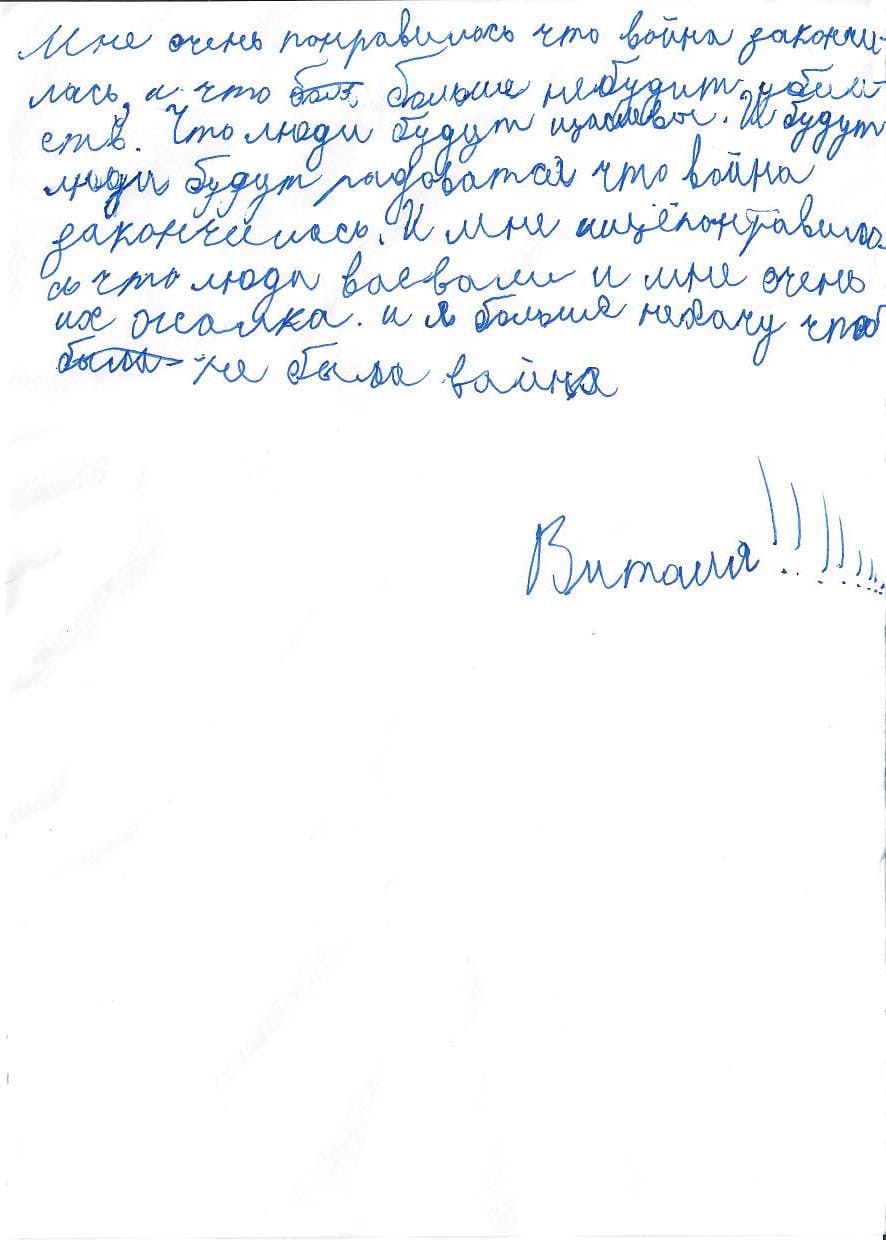 Мне очень понравилось что война закончи-
лась, и что больше небудит убий
ств. Что люди будут щасливы. И будут
люди будут радоватся что война
закончилось. И мне ищёпонтравило
сь что люди воевали и мне очень
их жалка. и я больше нехачу чтоб
не была вайна
Виталя!!!!!!!